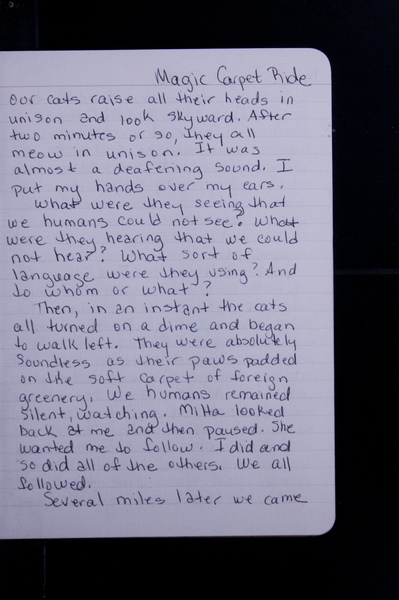 Magic Carpet Ride
Our cats raise all their heads in
unison and look skyward. After
two minutes or so, they all
meow in unison. It was
almost a deafening sound. I
put my hands over my ears.
What were they seeing that
we humans could not see? What
were they hearing that we could
not hear? What sort of
language were they using? And
to whom or what?
Then, in an instant the cats
all turned on a dime and began
to walk left. They were absolutely
soundless as their paws padded
on the soft carpet of foreign
greenery. We humans remained
silent, watching. Milta looked
back at me and then paused. She
wanted me to follow. I did and
so did all of the others. We all
followed.
Several miles later we came